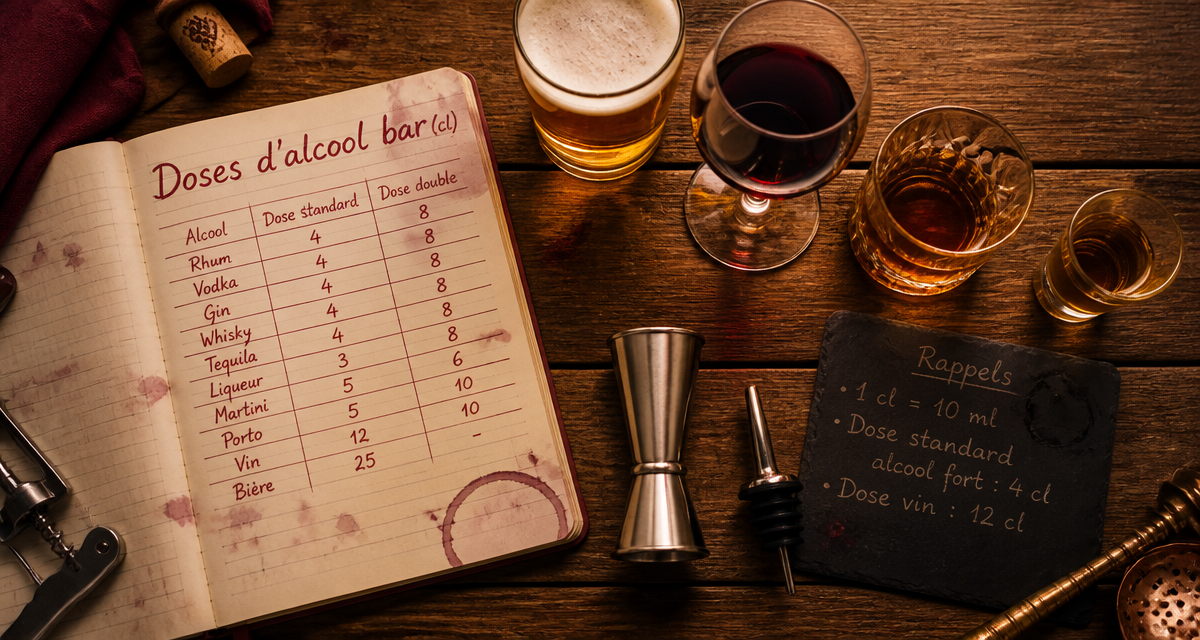 Doses d'alcool bar (cl)
Alcool Dose standard Dose double
Rhum 4 8
Vodka 4 8
Gin 4 8
Whisky 4 8
Tequila 4 8
Liqueur 3 8
Martini 5 6
Porto 5 10
Vin 12 10
Bière 25 -
Rappels
• 1 cl = 10 ml
• Dose standard
alcool fort : 4 cl
• Dose vin : 12 cl